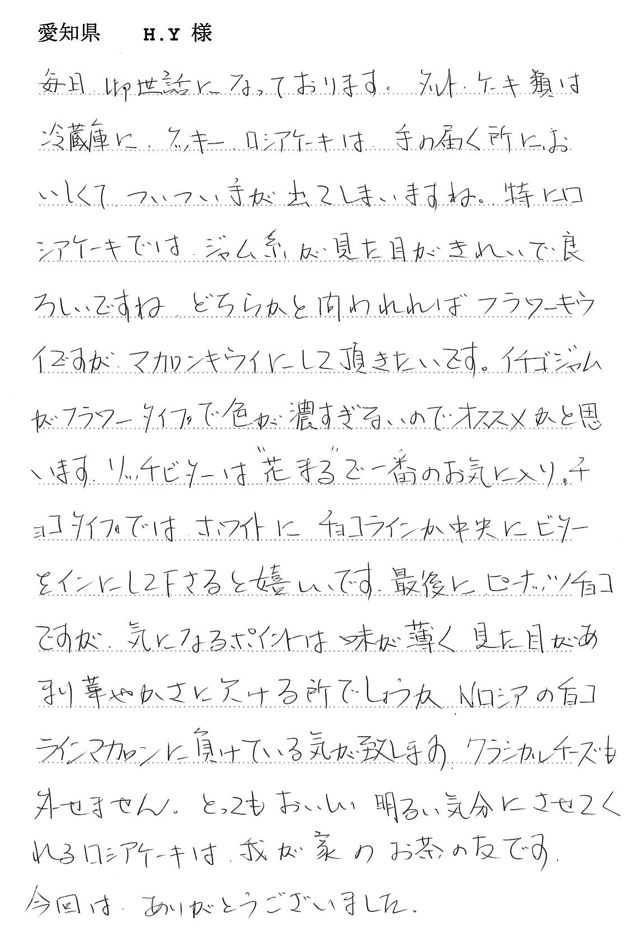 愛知県 H.Y 様
毎日 御世話になっております。タルト・ケーキ類は
冷蔵庫に、クッキー、ロシアケーキは、手の届く所にお
いしくて ついつい手が出てしまいますね。特にロ
シアケーキでは ジャム系が見た目がきれいで良
ろしいですね どちらかと問われればフラワーキウ
イですが マカロンキウイにして頂きたいです。イチゴジャム
がフラワータイプで色が濃すぎないのでオススメかと思
います。リッチビターは"花まる"で一番のお気に入り。チ
ョコタイプでは ホワイトに チョコラインか中央に ビター
をインにして下さると嬉しいです。最後に ピーナッツチョコ
ですが、気になるポイントは 味が薄く 見た目があ
まり華やかさに欠ける所でしょうか Nロシアの白コ
ラインマカロンに負けている気が致します。クラシカルチーズも
外せません。とってもおいしい 明るい気分にさせてく
れるロシアケーキは 我が家の お茶の友です。
今回は、ありがとうございました。